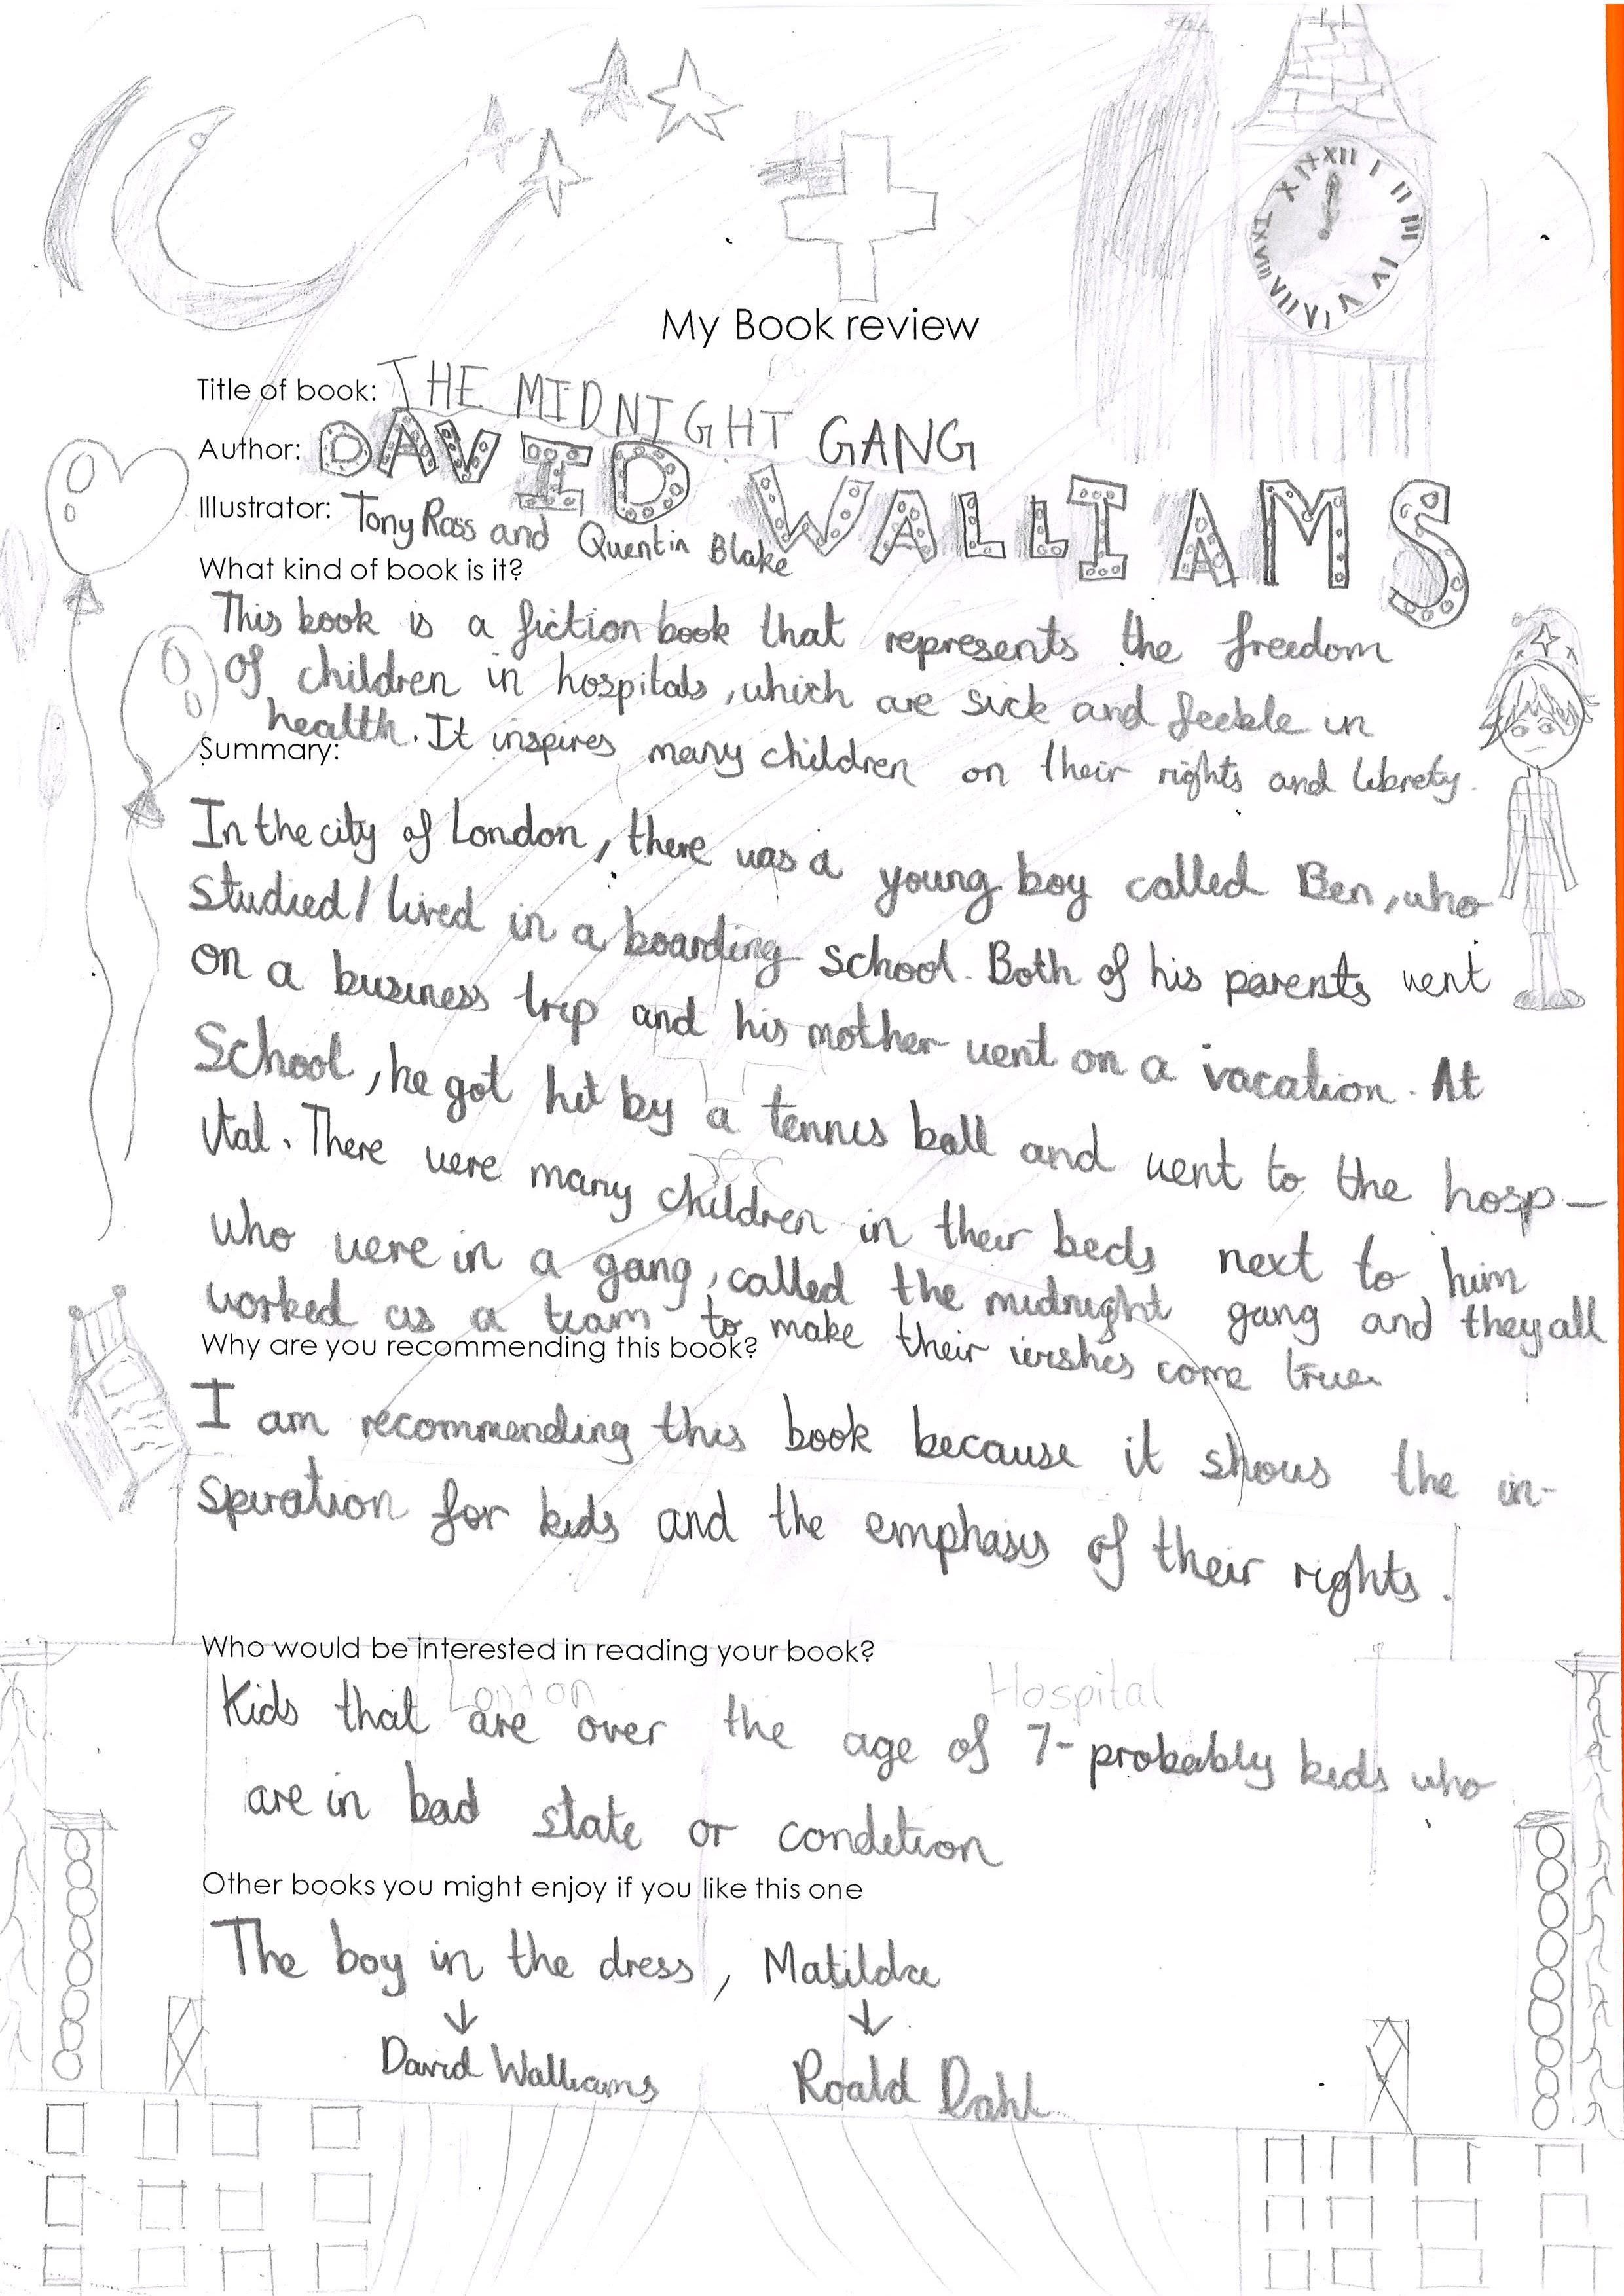 XII I II III IV V VI VII VIII IX X XI
My Book review
Title of book: THE MIDNIGHT GANG
Author: DAVID WALLIAMS
Illustrator: Tony Ross and Quentin Blake
What kind of book is it?
This book is a fiction book that represents the freedom
of children in hospitals, which are sick and feeble in
health. It inspires many children on their rights and librety.
Summary:
In the city of London, there was a young boy called Ben, who
studied/lived in a boarding school. Both of his parents went
on a business trip and his mother went on a vacation. At
School, he got hit by a tennis ball and went to the hosp-
ital. There were many children in their beds next to him
who were in a gang, called the midnight gang and they all
worked as a team to make their wishes come true.
Why are you recommending this book?
I am recommending this book because it shows the in-
spiration for kids and the emphasis of their rights.
Who would be interested in reading your book?
London Hospital
Kids that are over the age of 7- probably kids who
are in bad state or condition
Other books you might enjoy if you like this one
The boy in the dress, Matilda
↓ ↓
David Walliams Roald Dahl